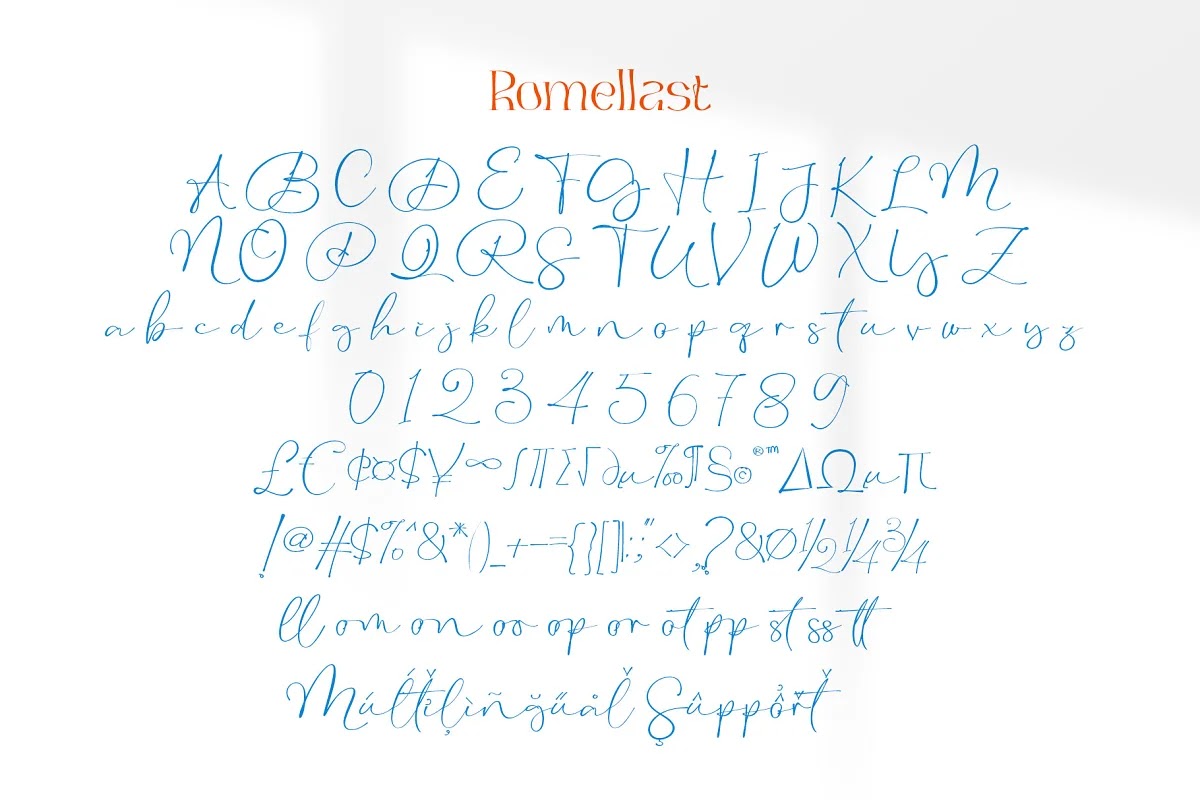 Romellast
A B C D E F G H I J K L M
N O P Q R S T U V W X Y Z
a b c d e f g h i j k l m n o p q r s t u v w x y z
0 1 2 3 4 5 6 7 8 9
£ € ¢ ¤ $ ¥ ∞ ∫ ∏ ∑ √ ∂ µ ‰ ¶ § © ® ™ ∆ Ω µ π
! @ # $ % ^ & * ( ) _ + — = { } [ ] | : ; " < > , ? & Ø ½ ¼ ¾
ll om on oo op or ot pp st ss tt